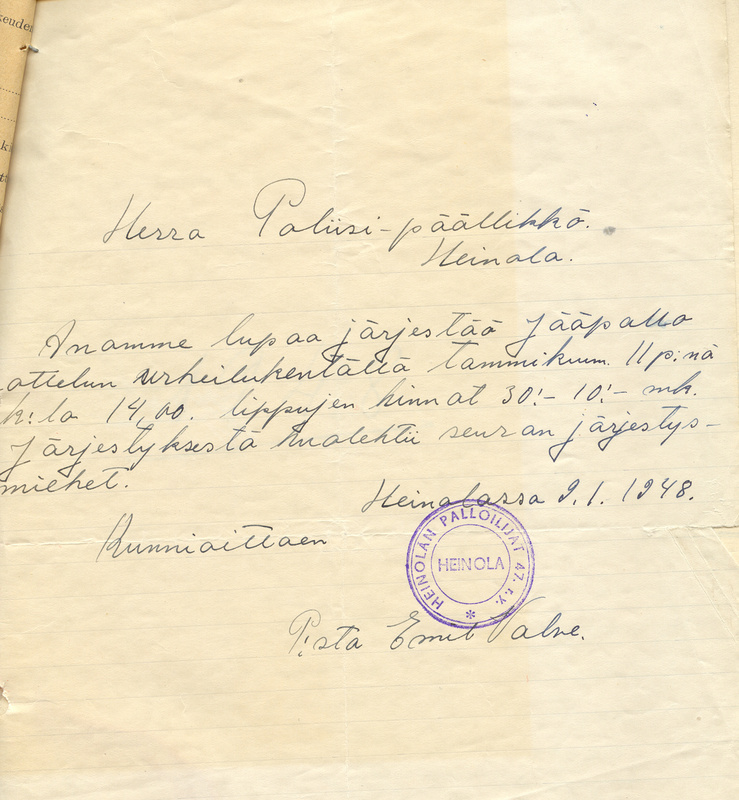 keuden
Herra Poliisi-päällikkö.
Heinola.
Anomme lupaa järjestää Jääpallo
ottelun urheilukentällä tammikuun. 11 p:nä
k:lo 14,00. lippujen hinnat 30:- 10:- mk.
Järjestyksestä huolehtii seuran järjestys-
miehet.
Heinolassa 9.1.1948.
Kunnioittaen
HEINOLAN PALLOILIJAT 47. r.y.
HEINOLA
*
P:sta Emil Valve.